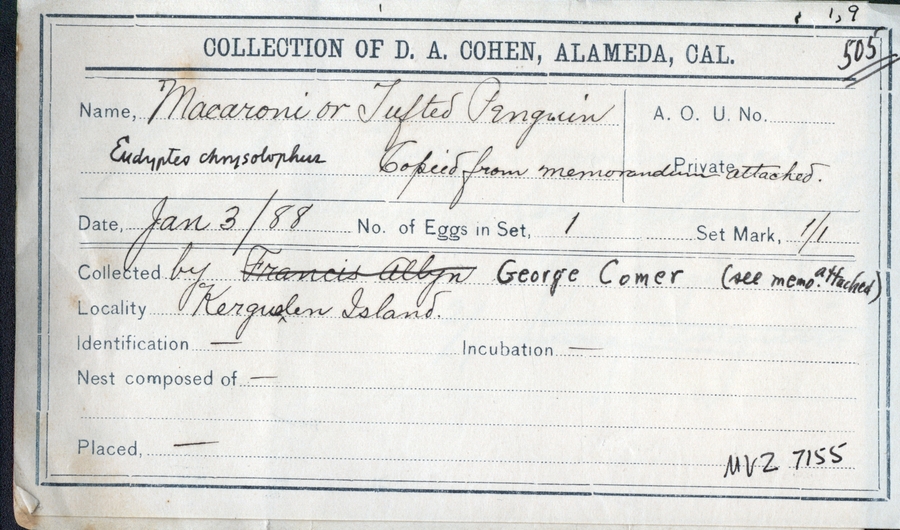 1,9
COLLECTION OF D. A. COHEN, ALAMEDA, CAL. 505
Name, Macaroni or Tufted Penguin A. O. U. No.
Eudyptes chrysolophus Copied from memorandum attached. Private
Date, Jan 3/88 No. of Eggs in Set, 1 Set Mark, 1/1
Collected by Francis Allyn George Comer (see memo. attached)
Locality Kerguelen Island.
Identification — Incubation —
Nest composed of —
Placed, —
MVZ 7155